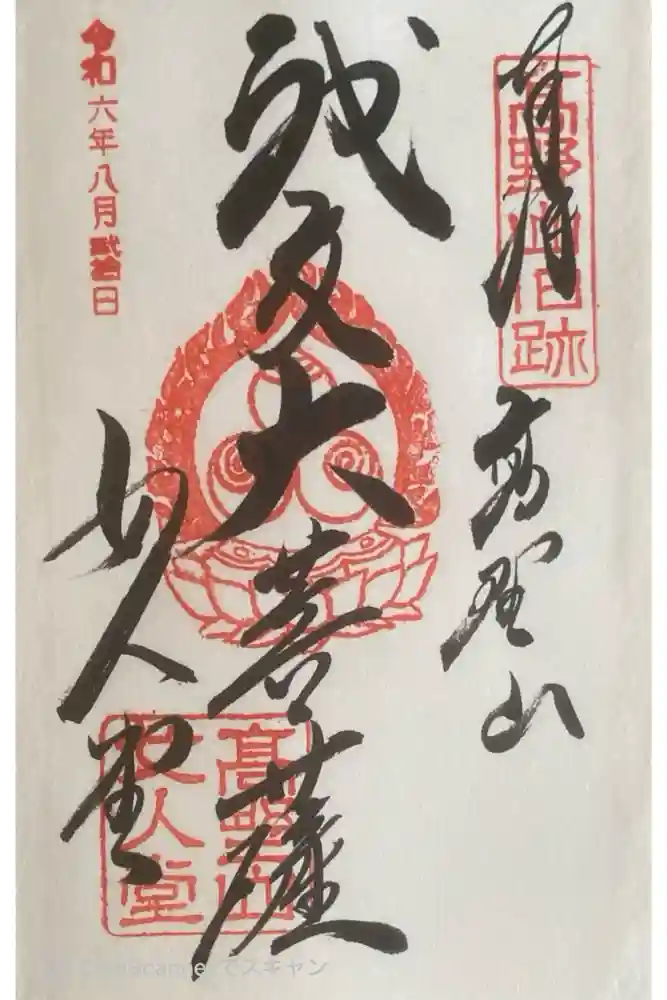 高野山旧跡
奉拝
高野山
神変大菩薩
女人堂
高野山
女人堂
令和六年八月弐拾日
CamScannerでスキャン